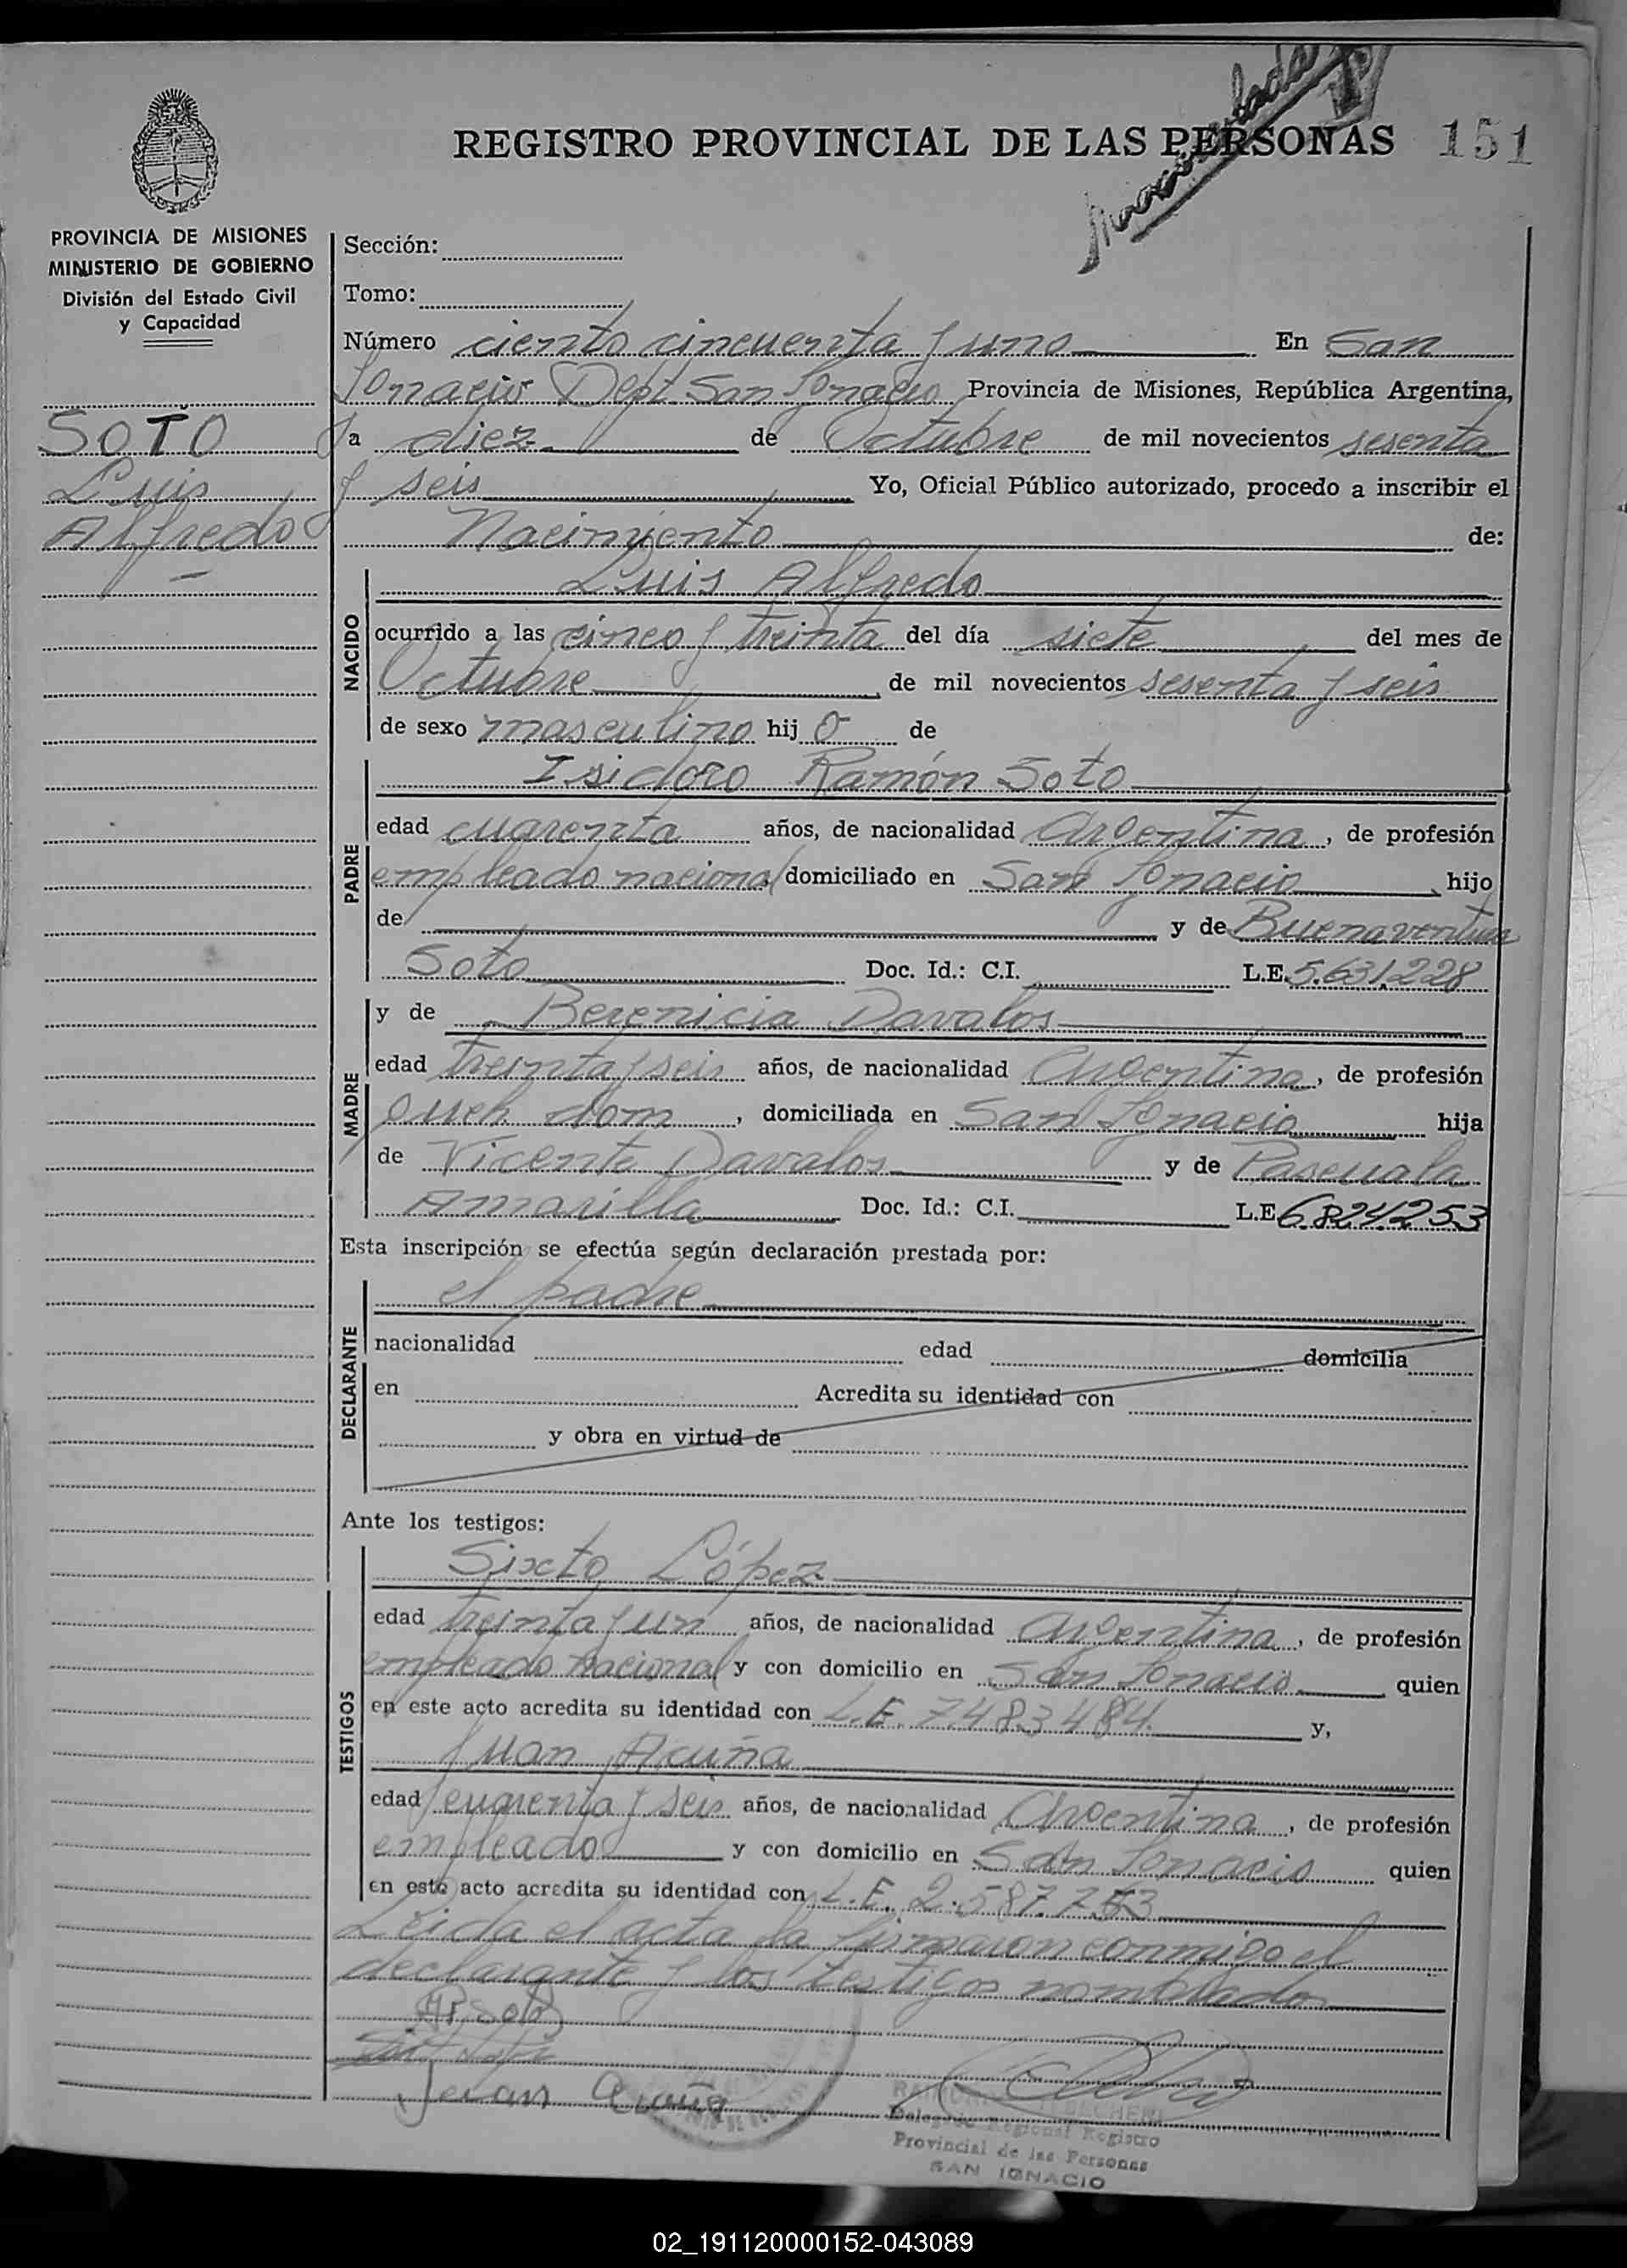 REGISTRO PROVINCIAL DE LAS PERSONAS 151
PROVINCIA DE MISIONES
MINISTERIO DE GOBIERNO
División del Estado Civil
y Capacidad
SOTO
Luis
Alfredo
Sección:
Tomo:
Número ciento cincuenta y uno En San
Ignacio Dept. San Ignacio Provincia de Misiones, República Argentina,
a diez de Octubre de mil novecientos sesenta
y seis Yo, Oficial Público autorizado, procedo a inscribir el
Nacimiento de:
NACIDO
Luis Alfredo
ocurrido a las cinco y treinta del día siete del mes de
Octubre de mil novecientos sesenta y seis
de sexo masculino hij o de
PADRE
Isidoro Ramón Soto
edad cuarenta años, de nacionalidad Argentina, de profesión
empleado nacional domiciliado en San Ignacio, hijo
de y de Buenaventura
Soto Doc. Id.: C.I. L.E. 5.631.228
MADRE
y de Berenicia Davalos
edad treinta y seis años, de nacionalidad Argentina, de profesión
queh. dom, domiciliada en San Ignacio hija
de Vicente Davalos y de Pascuala
Amarilla Doc. Id.: C.I. L.E 6.824.253
Esta inscripción se efectúa según declaración prestada por:
DECLARANTE
el padre
nacionalidad edad domicilia
en Acredita su identidad con
y obra en virtud de
Ante los testigos:
TESTIGOS
Sixto López
edad treinta y un años, de nacionalidad Argentina, de profesión
empleado nacional y con domicilio en San Ignacio quien
en este acto acredita su identidad con L.E. 7.483.484 y,
Juan Acuña
edad cuarenta y seis años, de nacionalidad Argentina, de profesión
empleado y con domicilio en San Ignacio quien
en este acto acredita su identidad con L.E. 2.587.753
Leida el acta la firmaron conmigo el
declarante y los testigos nombrados
Soto
Juan Acuña
Delegado Regional Registro
Provincial de las Personas
SAN IGNACIO
02_191120000152-043089